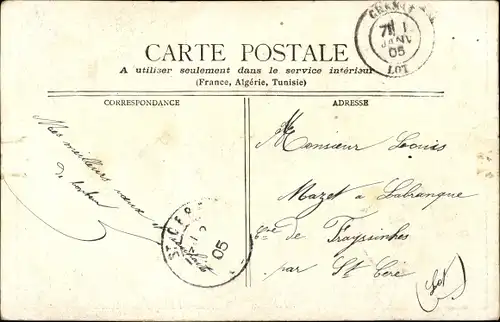 CARTE POSTALE
A utiliser seulement dans le service intérieur
(France, Algérie, Tunisie)
CORRESPONDANCE
ADRESSE
7
1
JANV
05
LOT
Mes meilleurs vœux
de bonheur
ST CERE
05
Monsieur Louis
Mazet à Labranque
Cne de Frayssinhes
par St Céré
(Lot)